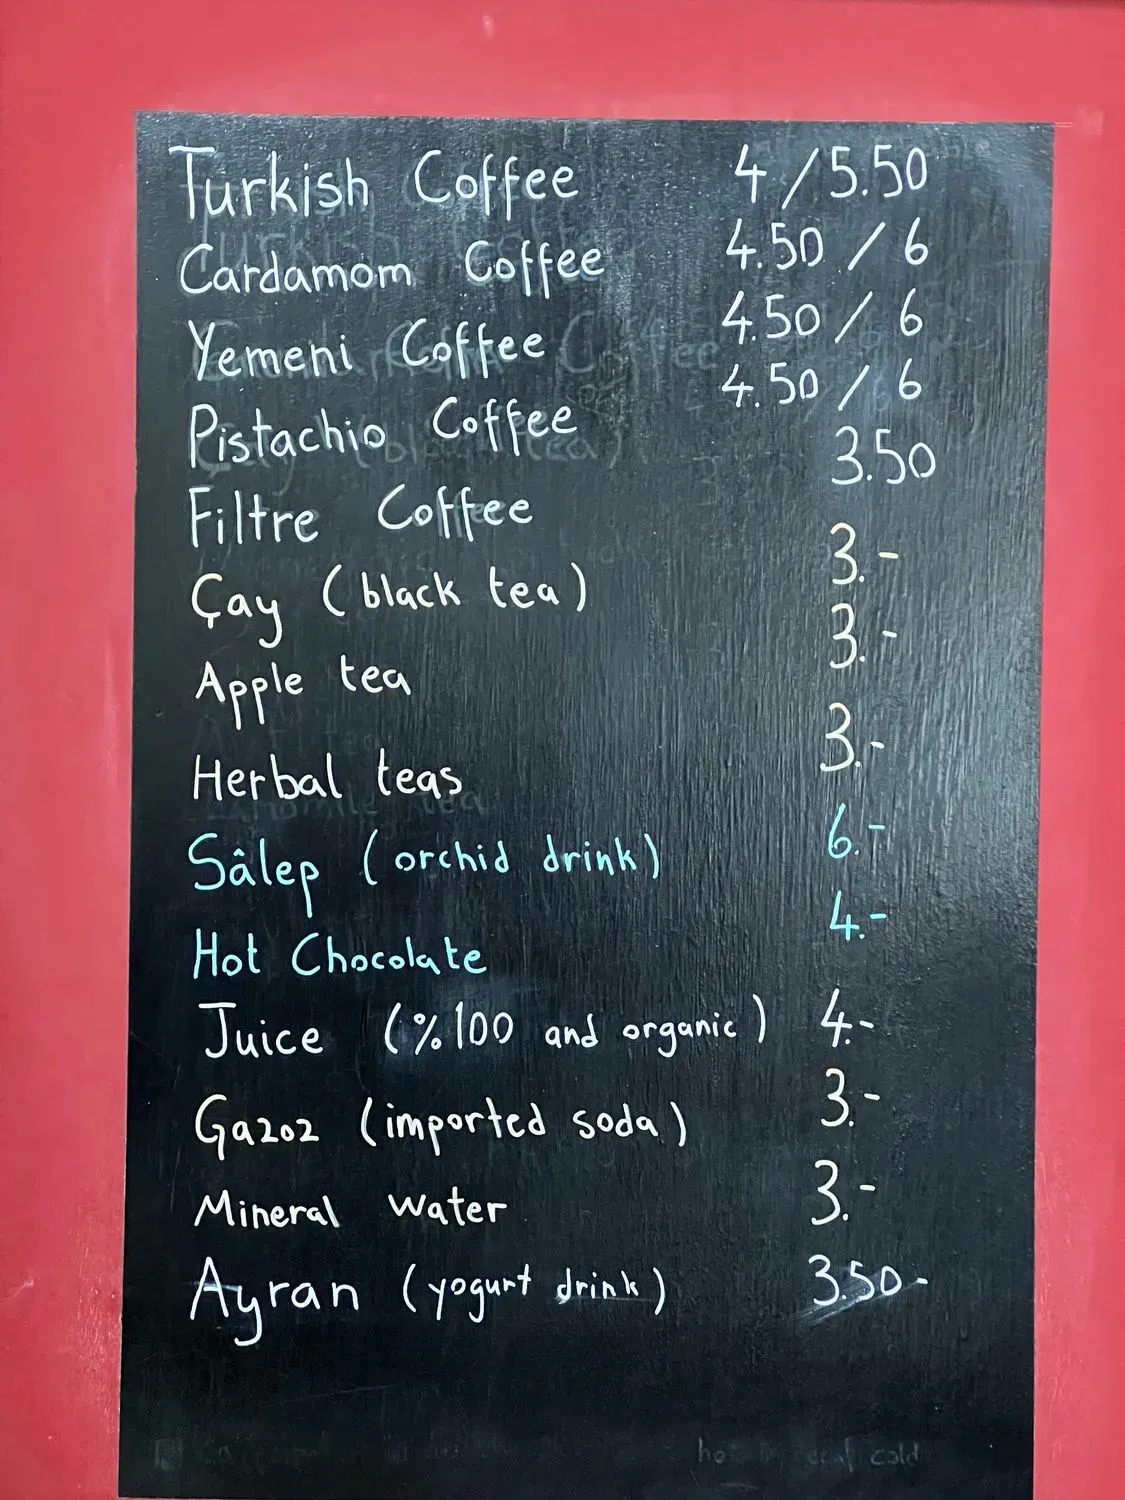 Turkish Coffee 4 / 5.50
Cardamom Coffee 4.50 / 6
Yemeni Coffee 4.50 / 6
Pistachio Coffee 4.50 / 6
Filtre Coffee 3.50
Çay (black tea) 3.-
Apple tea 3.-
Herbal teas 3.-
Sâlep (orchid drink) 6.-
Hot Chocolate 4.-
Juice (%100 and organic) 4.-
Gazoz (imported soda) 3.-
Mineral water 3.-
Ayran (yogurt drink) 3.50-